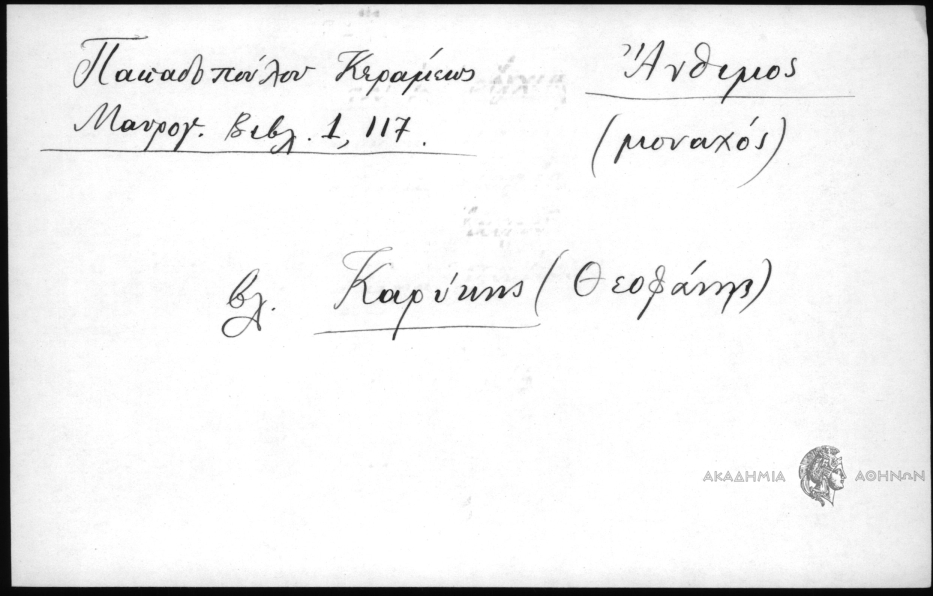 Παπαδοπούλου Κεραμέως
Μαυρογ. Βιβλ. 1, 117.
Ἄνθιμος
(μοναχός)
βλ. Καρύκης (Θεοφάνης)
ΑΚΑΔΗΜΙΑ ΑΘΗΝΩΝ